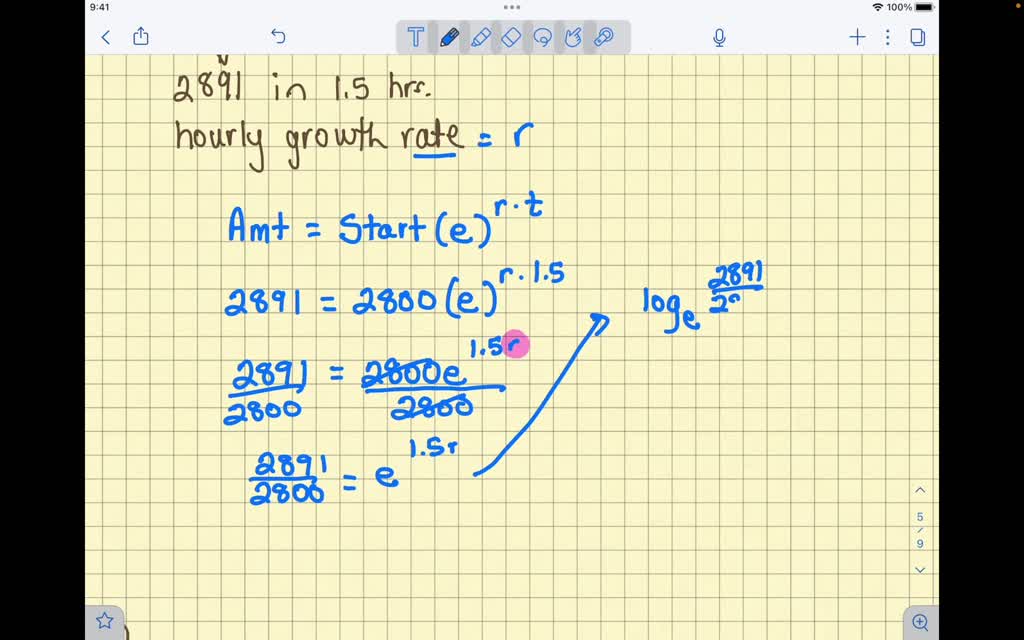 9:41
100%
T
2891 in 1.5 hrs.
hourly growth rate = r
Amt = Start (e)^r·t
2891 = 2800 (e)^r·1.5
2891/2800 = 2800e^1.5r/2800
2891/2800 = e^1.5r
log_e 2891/
5
/
9